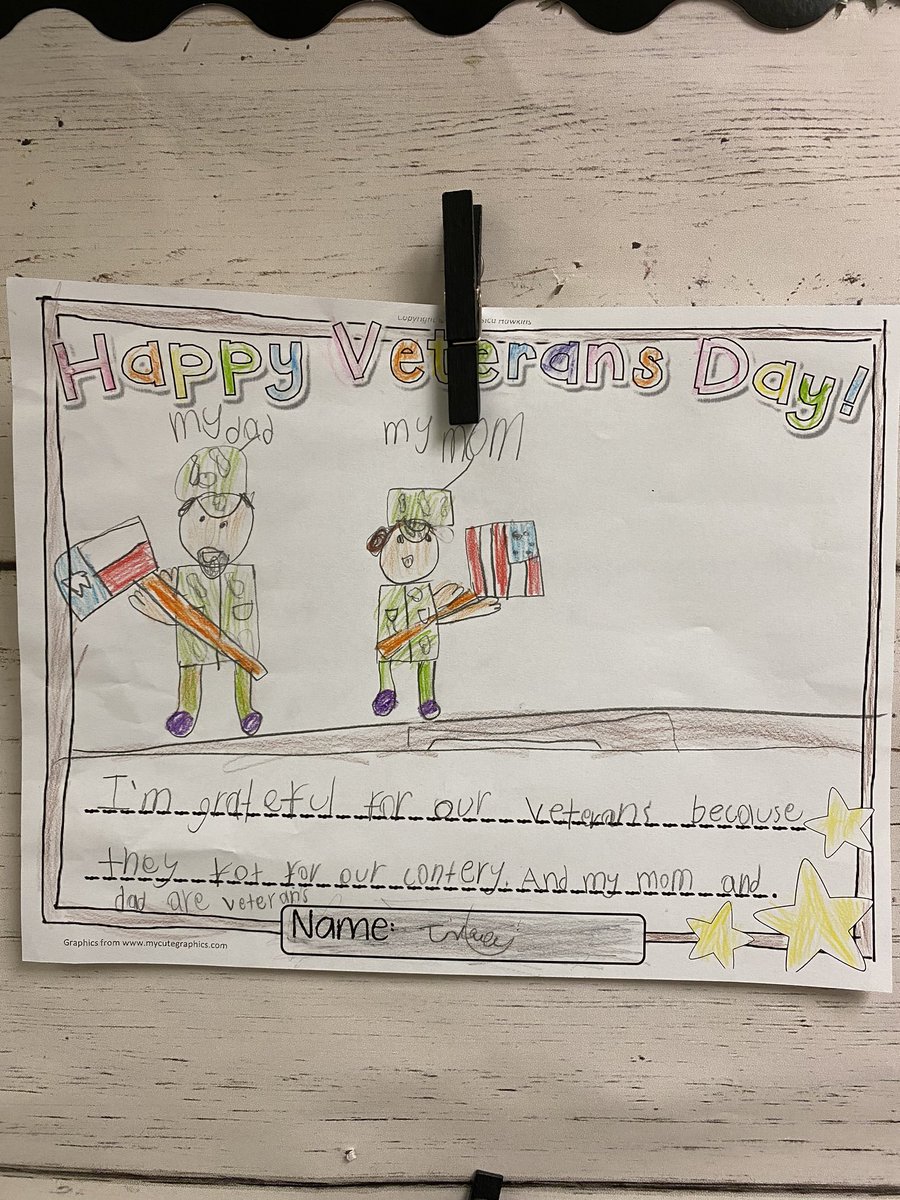 Happy Veterans Day!
my dad my mom
I'm grateful for our veterans because
they fot for our contery. And my mom and.
dad are veterans
Name:
Graphics from www.mycutegraphics.com